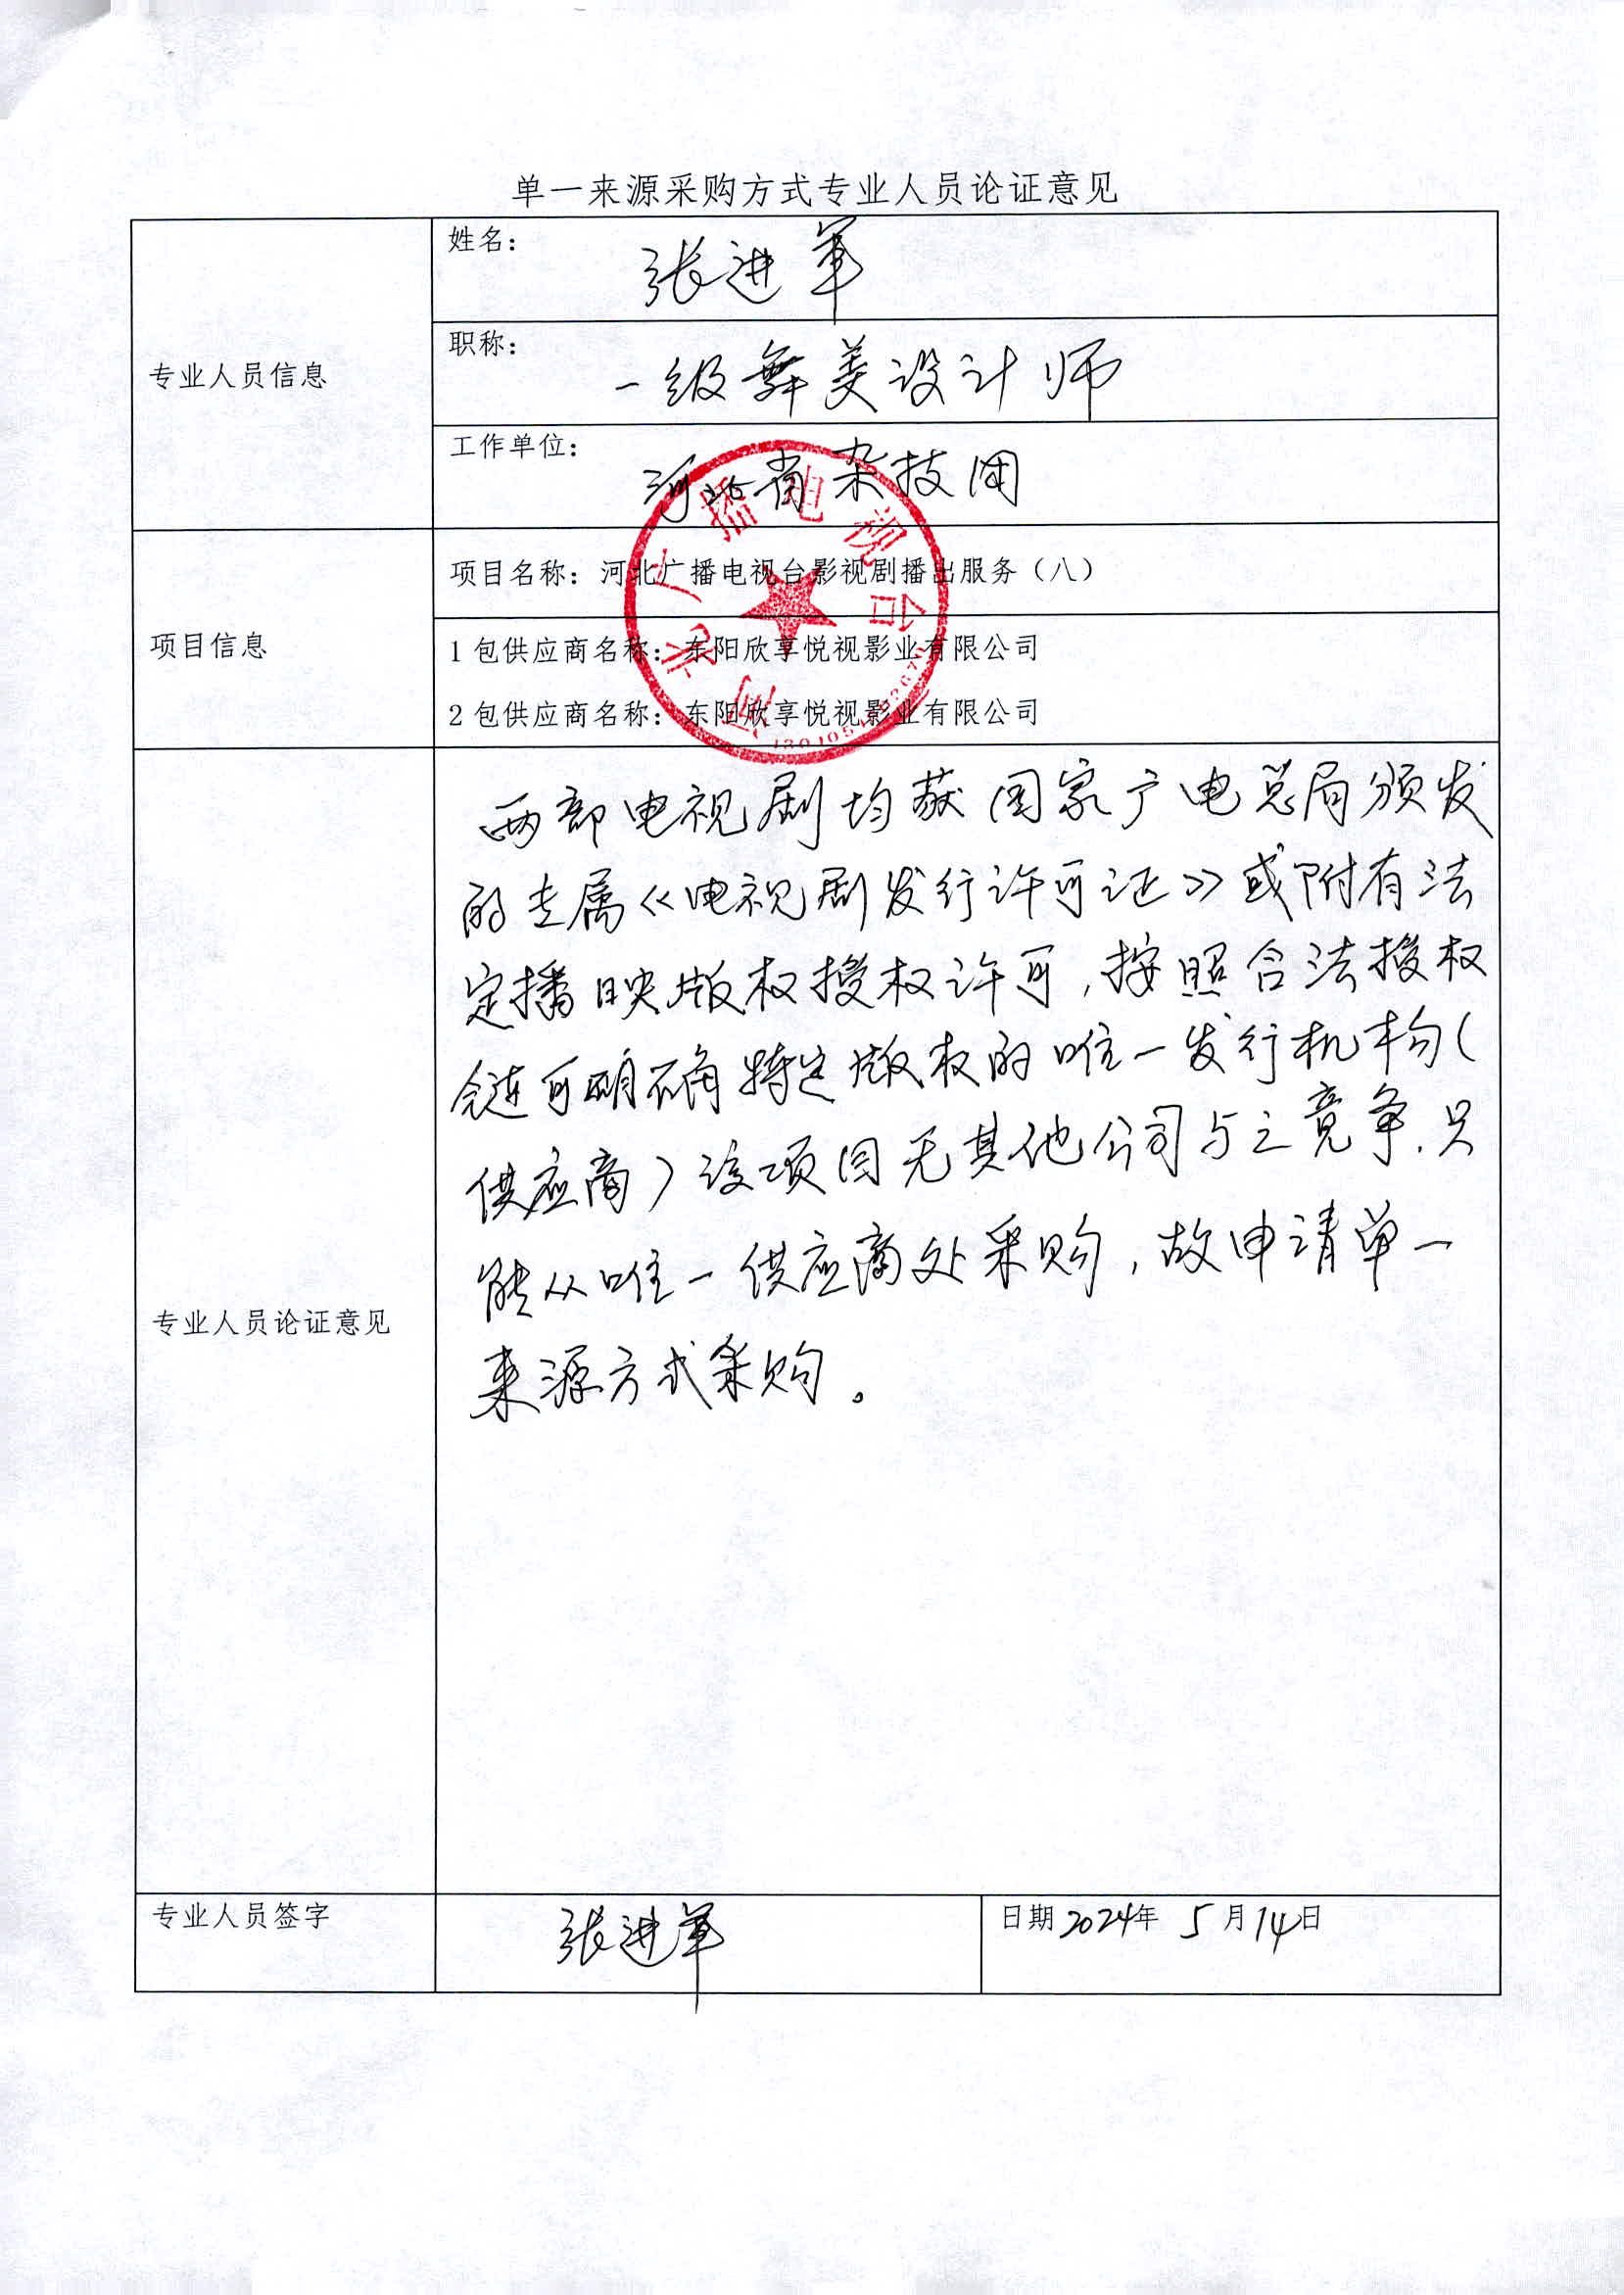 单一来源采购方式专业人员论证意见
专业人员信息
姓名：张进军
职称：一级舞美设计师
工作单位：河北省杂技团
项目信息
项目名称：河北广播电视台影视剧播出服务（八）
1包供应商名称：东阳欣享悦视影业有限公司
2包供应商名称：东阳欣享悦视影业有限公司
河北广播电视台
专业人员论证意见
两部电视剧均获国家广电总局颁发
的专属《电视剧发行许可证》或附有法
定播映版权授权许可，按照合法授权
链可明确特定版权的唯一发行机构（
供应商）该项目无其他公司与之竞争，只
能从唯一供应商处采购，故申请单一
来源方式采购。
专业人员签字
张进军
日期2024年5月14日